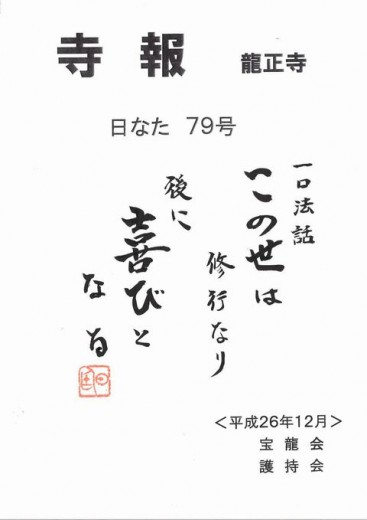 寺報 龍正寺
日なた 79号
一口法話
この世は
修行なり
後に
喜びと
なる
＜平成26年12月＞
宝龍会
護持会